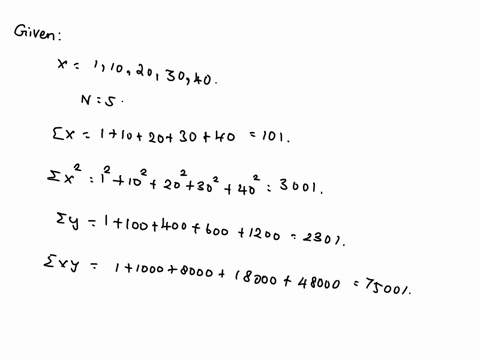 Given:
x = 1, 10, 20, 30, 40.
N = 5.
Σx = 1 + 10 + 20 + 30 + 40 = 101.
Σx² = 1² + 10² + 20² + 30² + 40² = 3001.
Σy = 1 + 100 + 400 + 600 + 1200 = 2301.
Σxy = 1 + 1000 + 8000 + 18000 + 48000 = 75001.